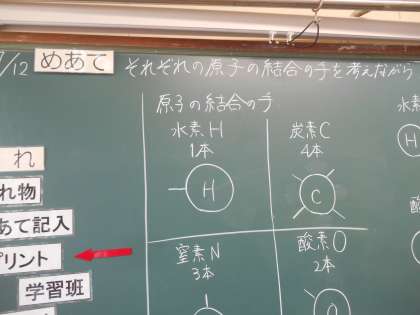 7/12 めあて それぞれの原子の結合の手を考えながら
原子の結合の手
水素H
1本
H
炭素C
4本
C
水素
H
窒素N
3本
酸素O
2本
O
れ
れ物
あて記入
プリント
学習班